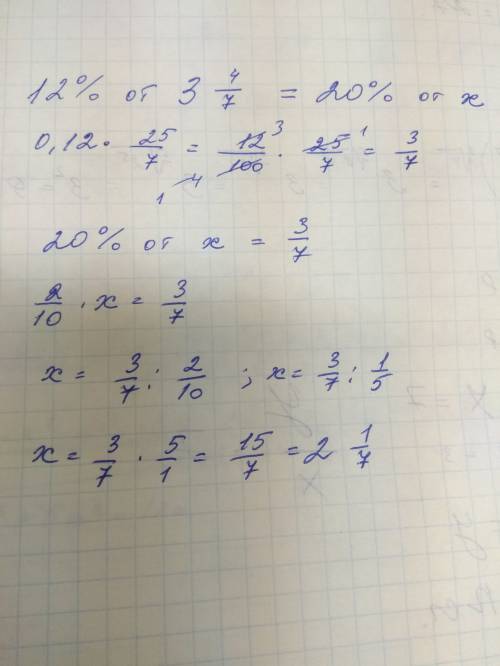 12% от 3 4/7 = 20% от x
0,12 · 25/7 = 12/100 · 25/7 = 3/7
3 1
1 4
20% от x = 3/7
2/10 · x = 3/7
x = 3/7 : 2/10 ; x = 3/7 : 1/5
x = 3/7 · 5/1 = 15/7 = 2 1/7